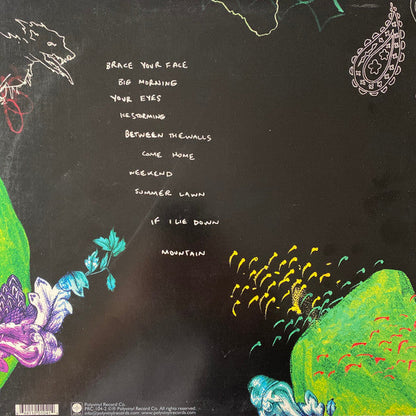 BRACE YOUR FACE
BIG MORNING
YOUR EYES
ICESTORMING
BETWEEN THE WALLS
COME HOME
WEEKEND
SUMMER LAWN
IF I LIE DOWN
MOUNTAIN
Polyvinyl Record Co.
PRC-104-2 ©℗ Polyvinyl Record Co. All rights reserved.
info@polyvinylrecords.com www.polyvinylrecords.com